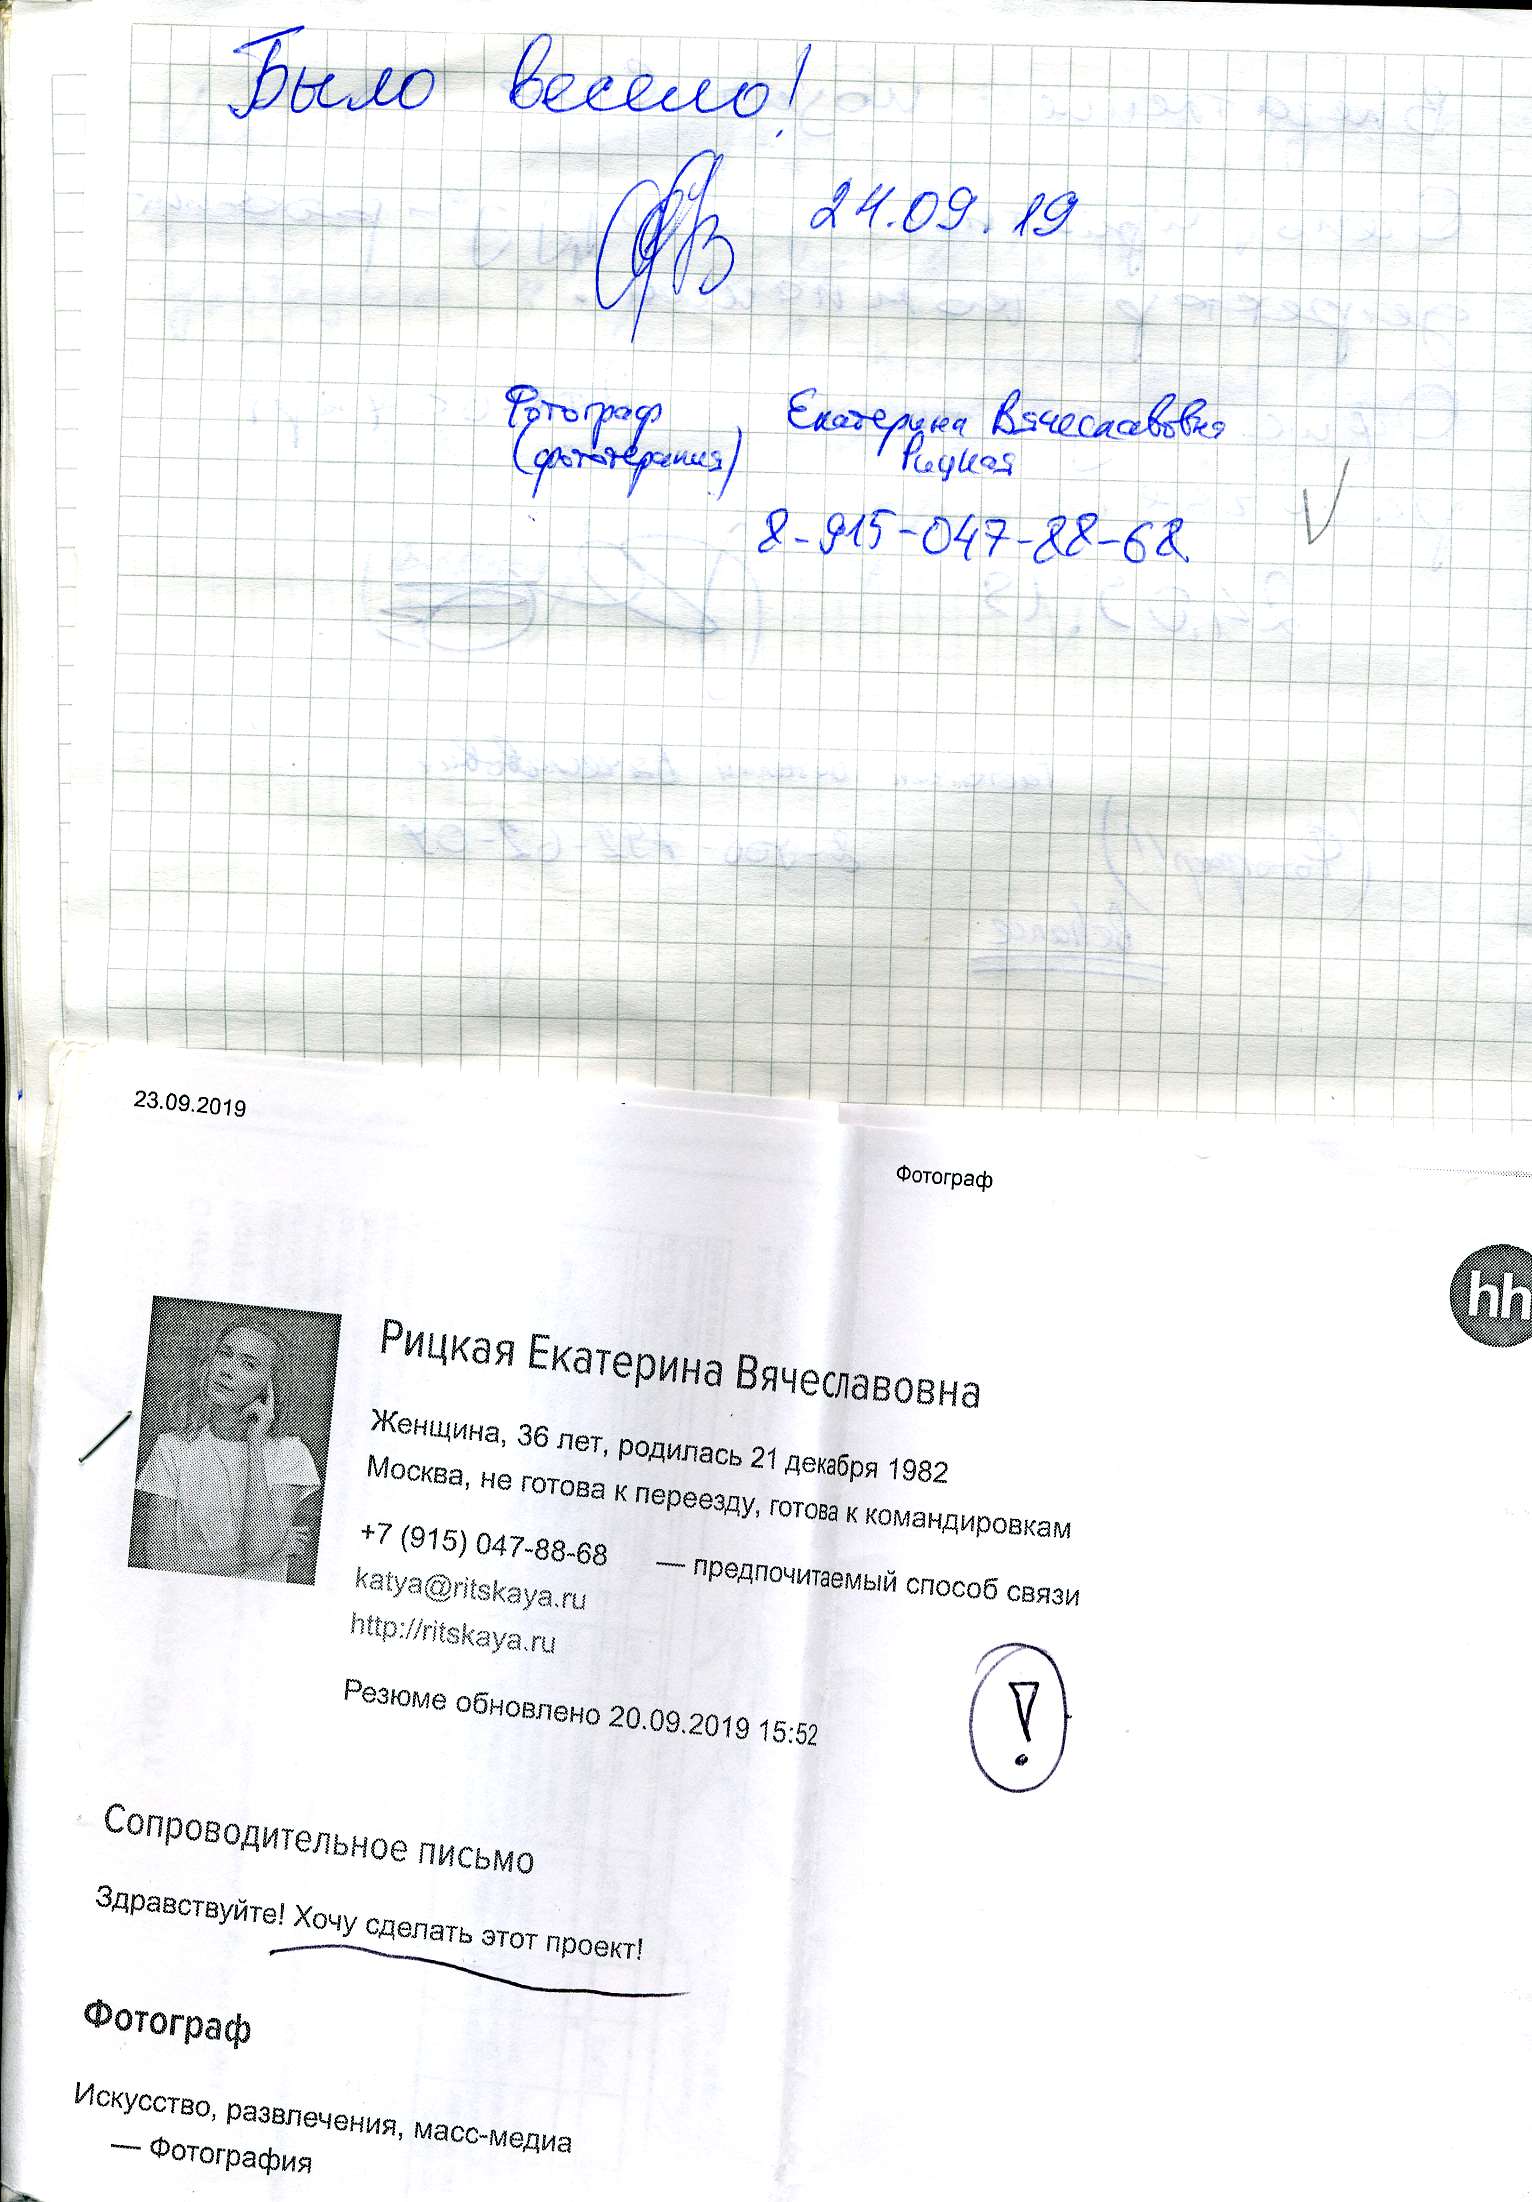 Было весело!
24.09.19
Фотограф Екатерина Вячеславовна
(фототерапия) Рицкая
8-915-047-88-68
23.09.2019
Фотограф
hh
Рицкая Екатерина Вячеславовна
Женщина, 36 лет, родилась 21 декабря 1982
Москва, не готова к переезду, готова к командировкам
+7 (915) 047-88-68 — предпочитаемый способ связи
katya@ritskaya.ru
http://ritskaya.ru
!
Резюме обновлено 20.09.2019 15:52
Сопроводительное письмо
Здравствуйте! Хочу сделать этот проект!
Фотограф
Искусство, развлечения, масс-медиа
— Фотография